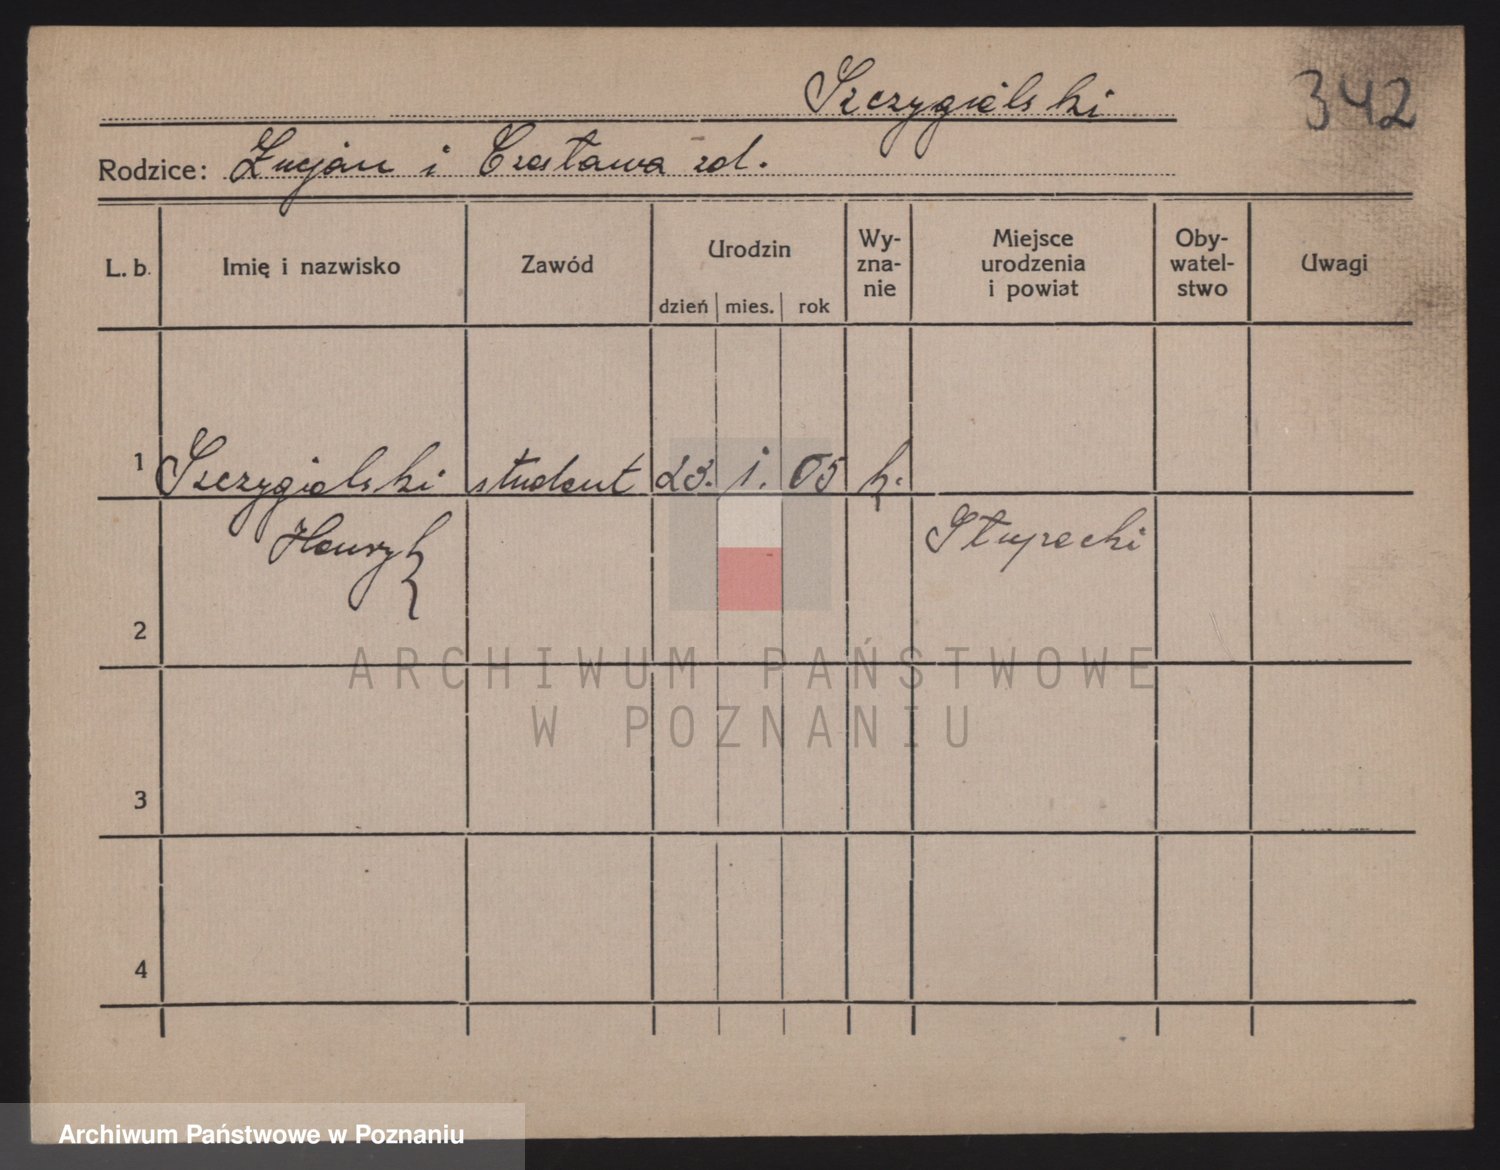 Szczygielski
342
Rodzice: Lucjan i Czesława zd.
L. b. Imię i nazwisko Zawód Urodzin dzień mies. rok Wy-zna-nie Miejsce urodzenia i powiat Oby-watel-stwo Uwagi
1 Szczygielski student 23. 1. 05 k.
Henryk Słupecki
2
ARCHIWUM PAŃSTWOWE
W POZNANIU
3
4
Archiwum Państwowe w Poznaniu